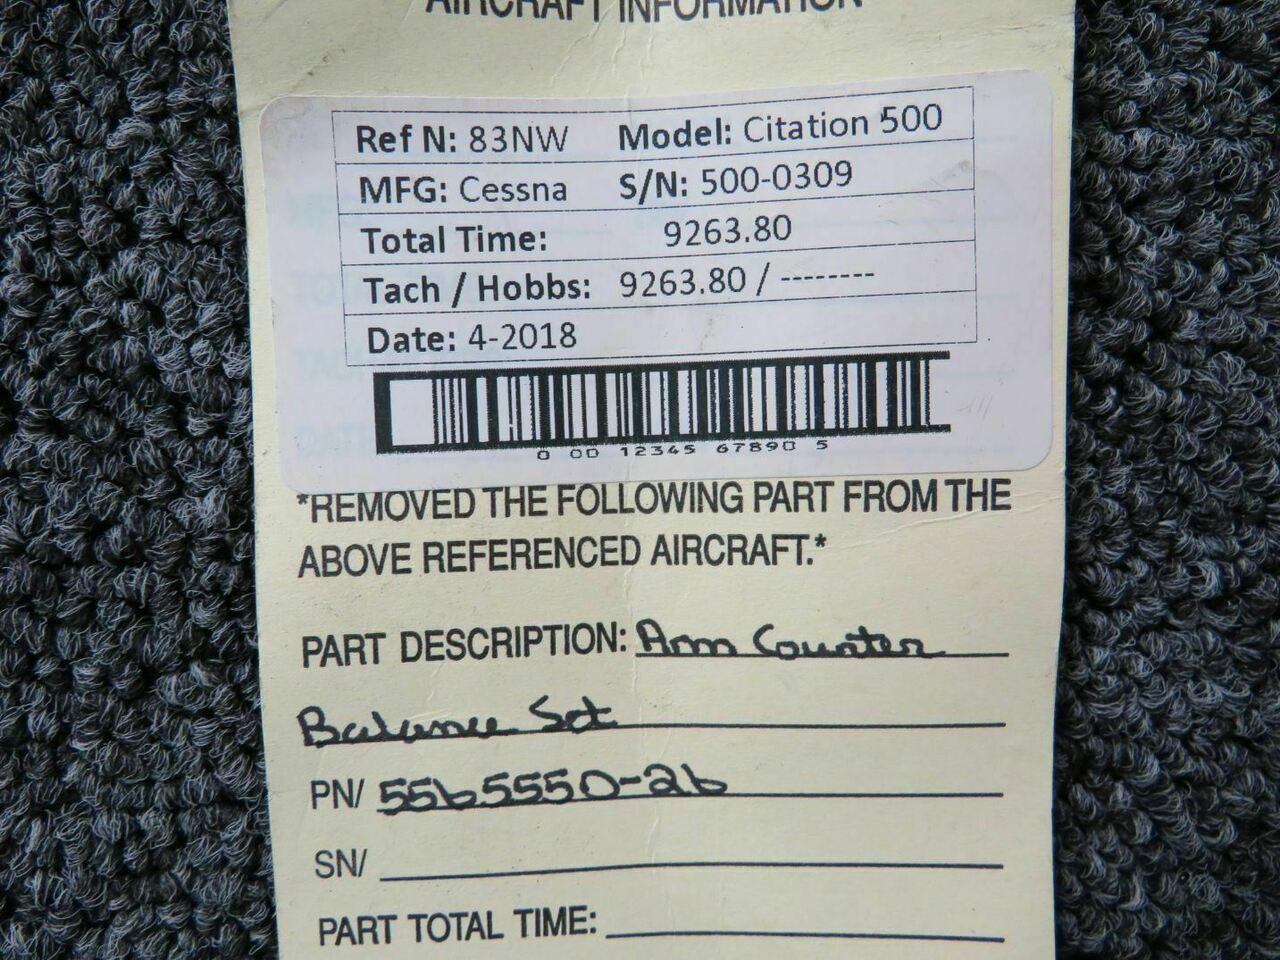 AIRCRAFT INFORMATION
Ref N: 83NW Model: Citation 500
MFG: Cessna S/N: 500-0309
Total Time: 9263.80
Tach / Hobbs: 9263.80 / --------
Date: 4-2018
0 00 12345 67890 5
*REMOVED THE FOLLOWING PART FROM THE
ABOVE REFERENCED AIRCRAFT.*
PART DESCRIPTION: Arm Counter
Balance Set
PN/ 5565550-26
SN/
PART TOTAL TIME: